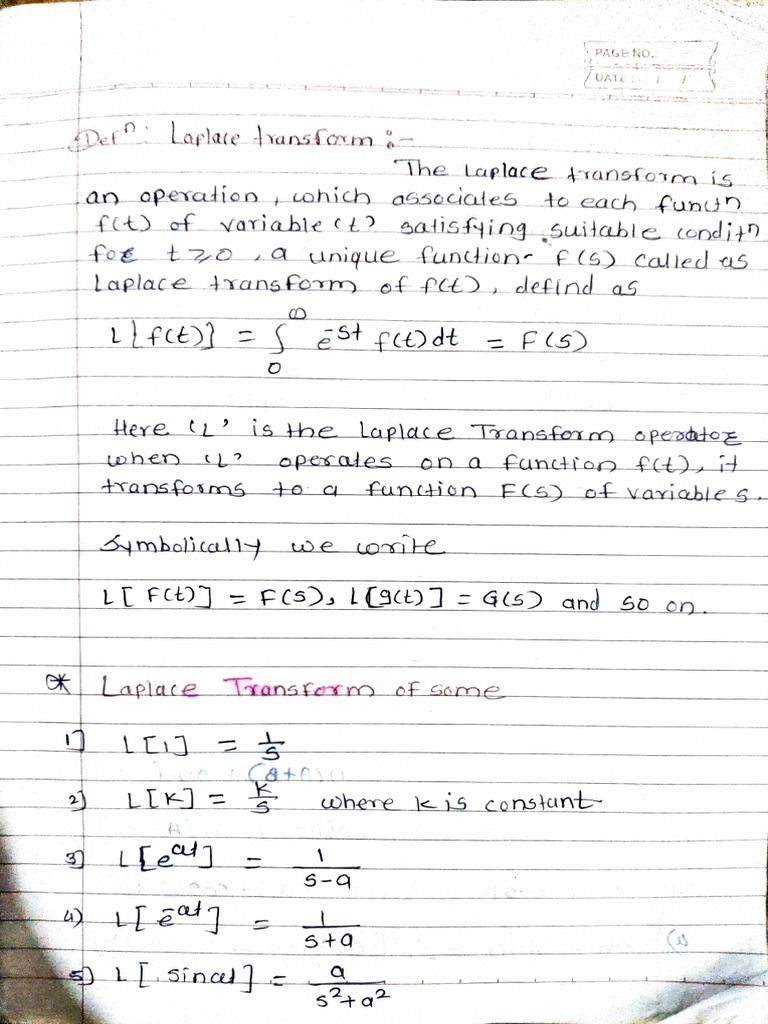 PAGE NO.
DATE: / /
Defⁿ: Laplace transform :-
The Laplace transform is
an operation, which associates to each functn
f(t) of variable 't' satisfying suitable conditⁿ
for t ≥ 0, a unique function F(s) called as
Laplace transform of f(t), defind as
L[f(t)] = ∫₀^∞ e^-st f(t) dt = F(s)
Here 'L' is the Laplace Transform operator
when 'L' operates on a function f(t), it
transforms to a function F(s) of variable s.
Symbolically we write
L[F(t)] = F(s), L[g(t)] = G(s) and so on.
* Laplace Transform of some
1] L[1] = 1/s
2] L[K] = K/s where k is constant
3] L[e^at] = 1/(s-a)
4) L[e^-at] = 1/(s+a)
5) L[sinat] = a/(s²+a²)